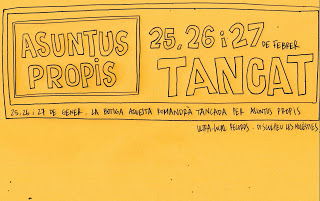 ASUNTUS
PROPIS
25, 26 i 27
DE FEBRER
TANCAT
25, 26 i 27 DE GENER, LA BOTIGA AQUESTA ROMANDRÀ TANCADA PER ASUNTUS PROPIS
ULTRA-LOCAL RECORDS. DISCULPEU LES MOLÈSTIES